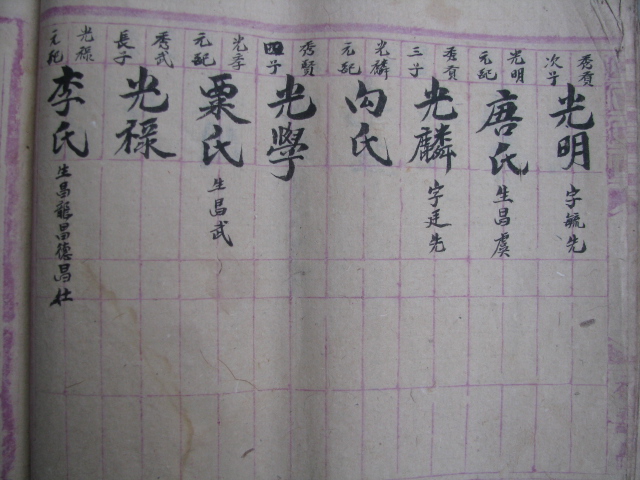 秀貢次子 光明 字毓先
光明元配 唐氏 生昌虞
秀貢三子 光麟 字廷先
光麟元配 向氏
秀賢四子 光學
光李元配 粟氏 生昌武
秀武長子 光祿
光祿元配 李氏 生昌龍昌德昌仕